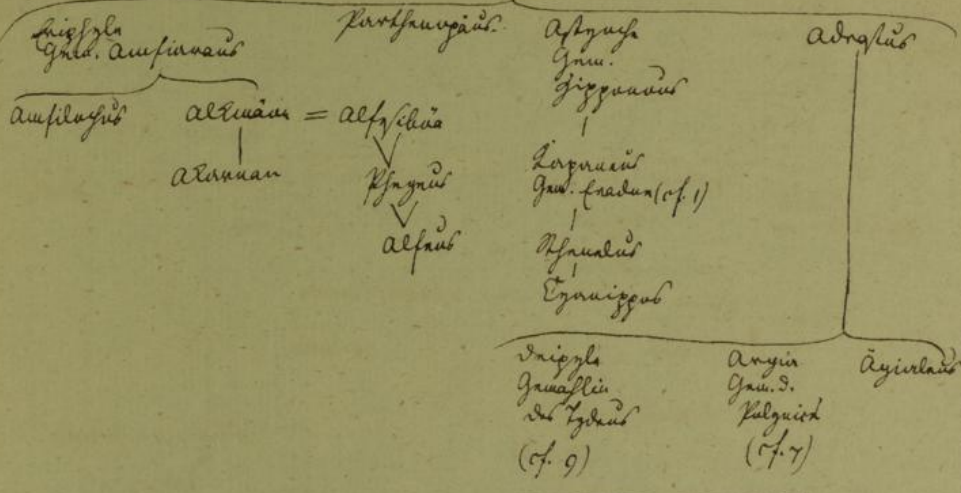 Eriphyle
Gem. Amfiaraus
Parthenopäus.
Astynche
Gem.
Hipponous
Adrastus
Amfilochus
Alkmäon = Alfesiböa
Akarnan
Phegeus
Alfeus
Kapaneus
Gem. Euadne (cf. 1)
Sthenelus
Cyanippos
Deipyle
Gemahlin
des Tydeus
(cf. 9)
Argia
Gem. d.
Polynices
(cf. 7)
Ägialeus